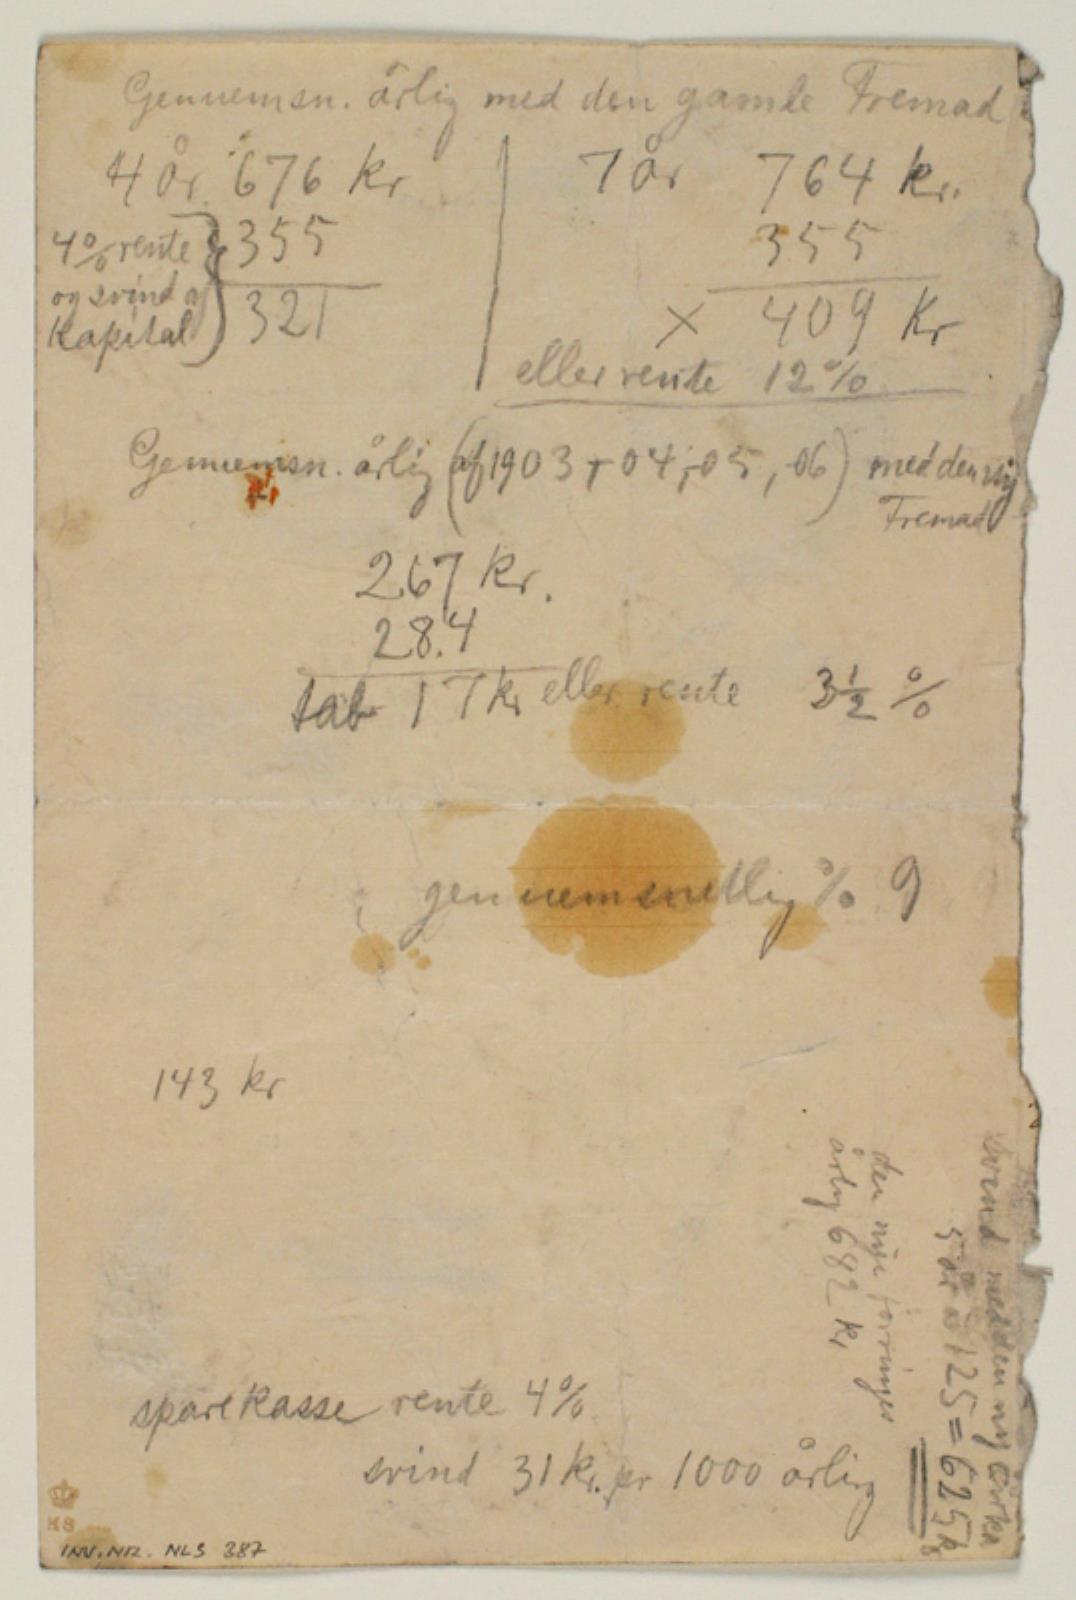 Gennemsn. årlig med den gamle Fremad
4 år 676 kr
4% rente
og svind af
Kapital
355
321
7 år 764 kr.
355
× 409 Kr
eller rente 12%
Gennemsn. årlig (af 1903 + 04, 05, 06) med den ny
Fremad
267 kr.
28.4
tab 17 kr eller rente 3½ %
gennemsnitlig % 9
143 kr
sparekasse rente 4%
svind 31 kr. pr 1000 årlig
den nye forringes
årlig 682 kr
svind med den ny cirka
5 år a 125 = 625 kr
KS
INV. NR. NLS 387